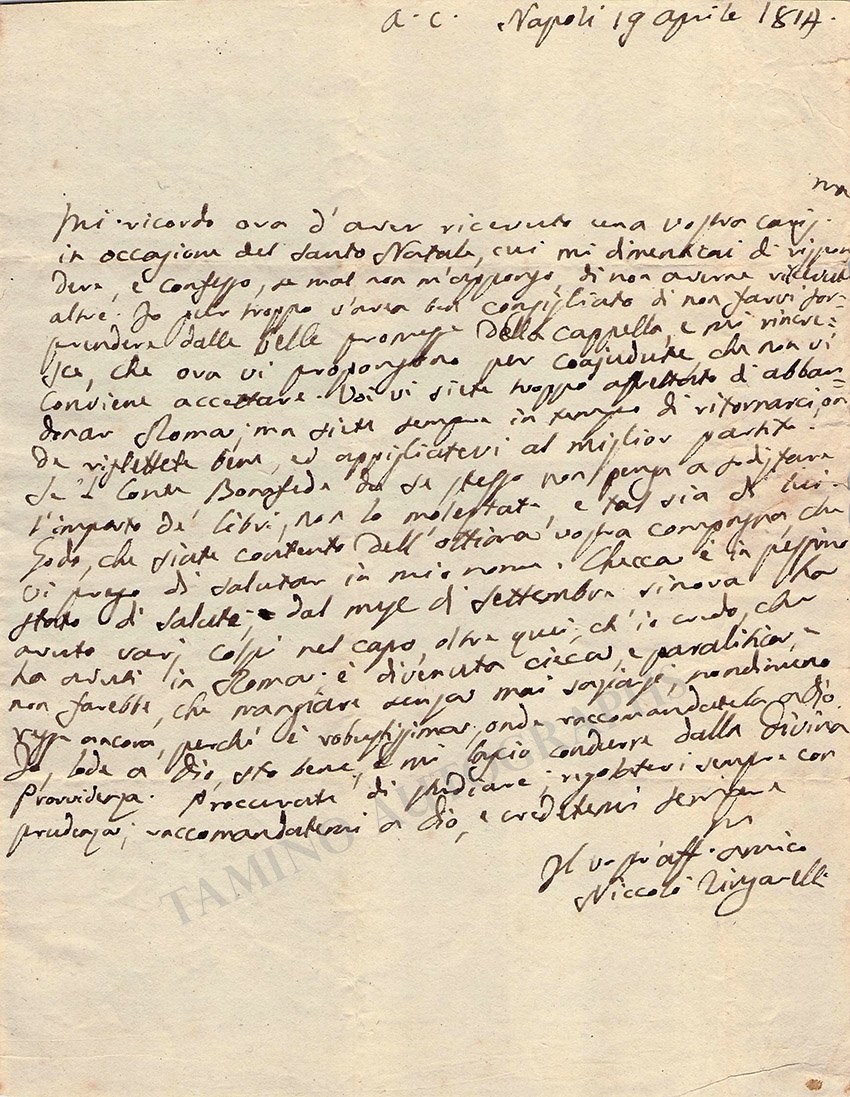 A. C. Napoli 19 aprile 1814.
Mi ricordo ora d'aver ricevuto una vostra cariss.ma
in occasione del Santo Natale, cui mi dimenticai di rispon
dere, e confesso, se mal non m'appongo di non averne ricevute
altre. Io pur troppo v'avea ben consigliato di non farvi sor=
prendere dalle belle promesse della cappella, e mi rincre=
sce, che ora vi propongono per coajudute che non vi
conviene accettare. Voi vi siete troppo affrettato di abban=
donar Roma; ma siete sempre in tempo di ritornarci, on
de riflettete bene, ed appigliatevi al miglior partito.
Se 'l Conte Bonafede da se stesso non pensa a sodisfare
l'importo de' libri, non lo molestate, e tal sia di lui.
Godo, che siate contento dell'ottima vostra compagna, che
vi prego di salutar in mio nome. Checca è in pessimo
stato di salute; dal mese di settembre sinora ha
avuto varj colpi nel capo, oltre quei, ch'io credo, che
ha avuti in Roma. è divenuta cieca, e paralitica, e
non farebbe, che mangiare senza mai saziarsi nondimeno
regge ancora, perché è robustissima, onde raccomandatela a Dio.
Io, lode a Dio, sto bene, e mi lascio condurre dalla divina
Provvidenza. Proccurate di studiare; regolatevi sempre con
prudenza; raccomandatemi a Dio, e credetemi sempre
Il vostr'aff.mo amico
Niccolò Zingarelli
TAMINO AUTOGRAPHS